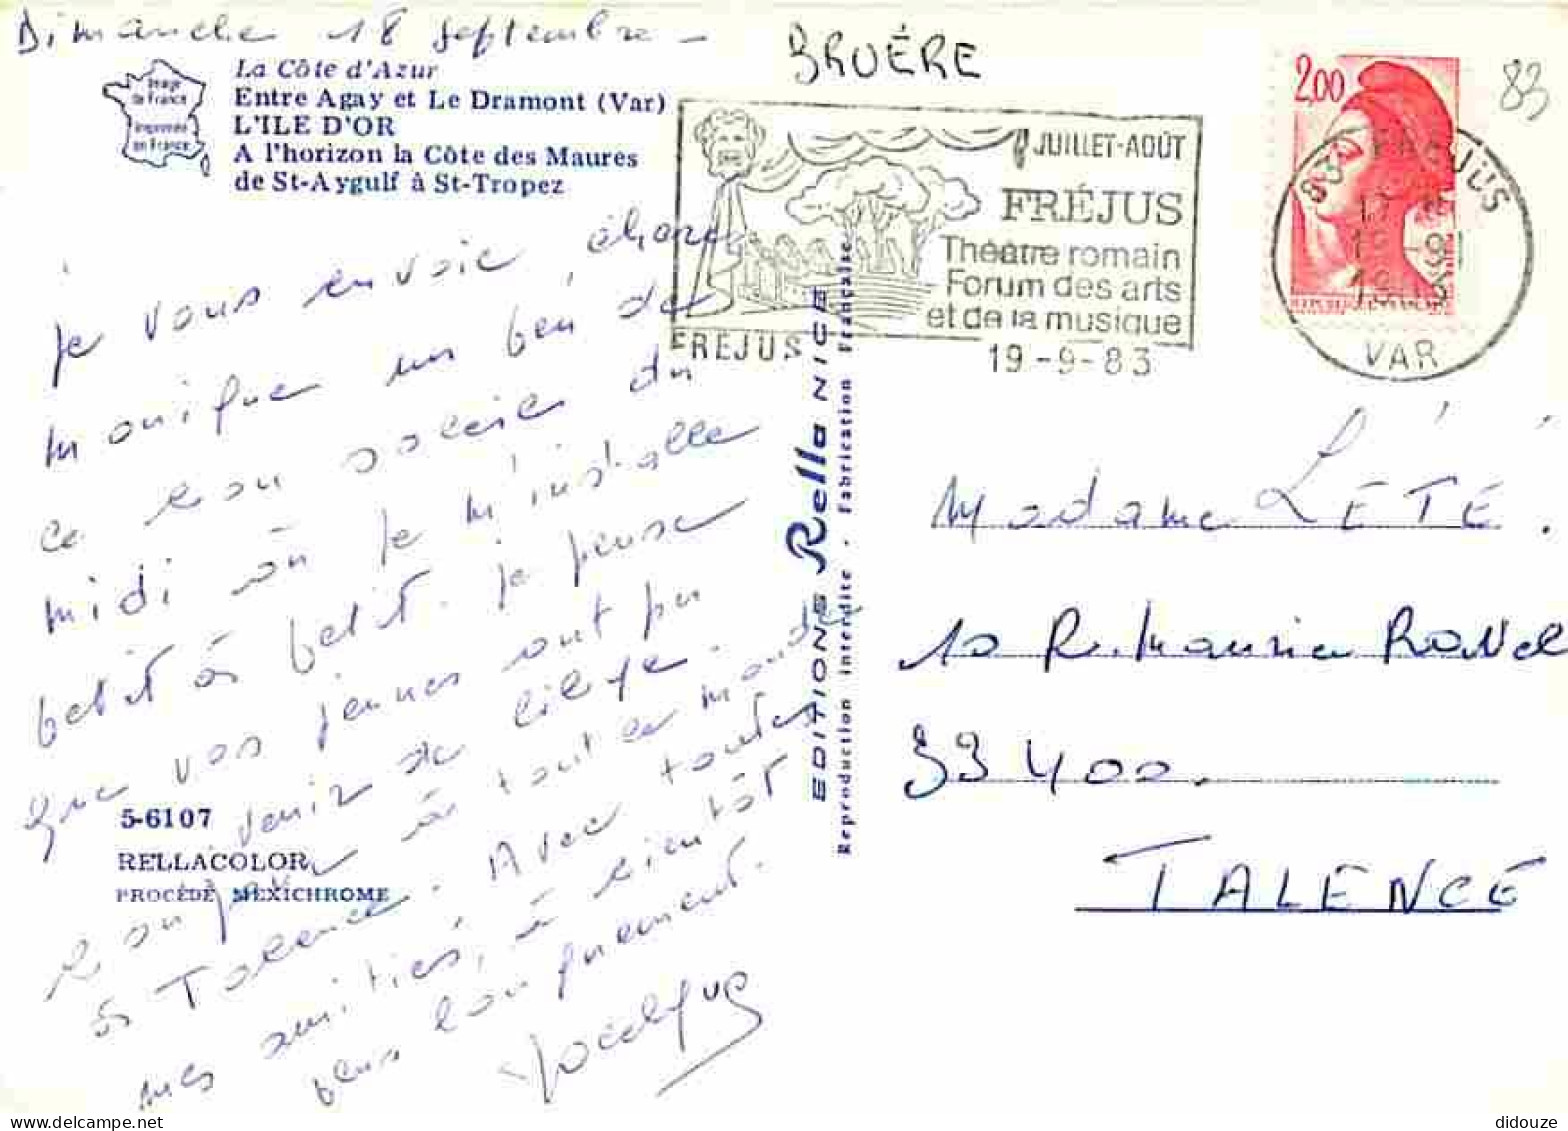 Dimanche 18 septembre -
BRUÉRE
83
Image
de France
Imprimée
en France
La Côte d'Azur
Entre Agay et Le Dramont (Var)
L'ILE D'OR
A l'horizon la Côte des Maures
de St-Aygulf à St-Tropez
Je vous envoie, chère
Monique un peu de
ce bon soleil du
midi où je m'installe
petit à petit. Je pense
que vos jeunes ont pu
venir de
Bonjour à tout le monde
à Talence. Avec toutes
mes amitiés, à bientôt
plus longuement.
5-6107
RELLACOLOR
PROCÉDÉ MEXICHROME
EDITIONS Rella NICE
Reproduction interdite - Fabrication Française
JUILLET-AOÛT
FRÉJUS
Théâtre romain
Forum des arts
et de la musique
FREJUS
19-9-83
2,00
83 FREJUS
VAR
Madame LÉTÉ.
10 R. Maurice Ravel
33400.
TALENCE
didouze